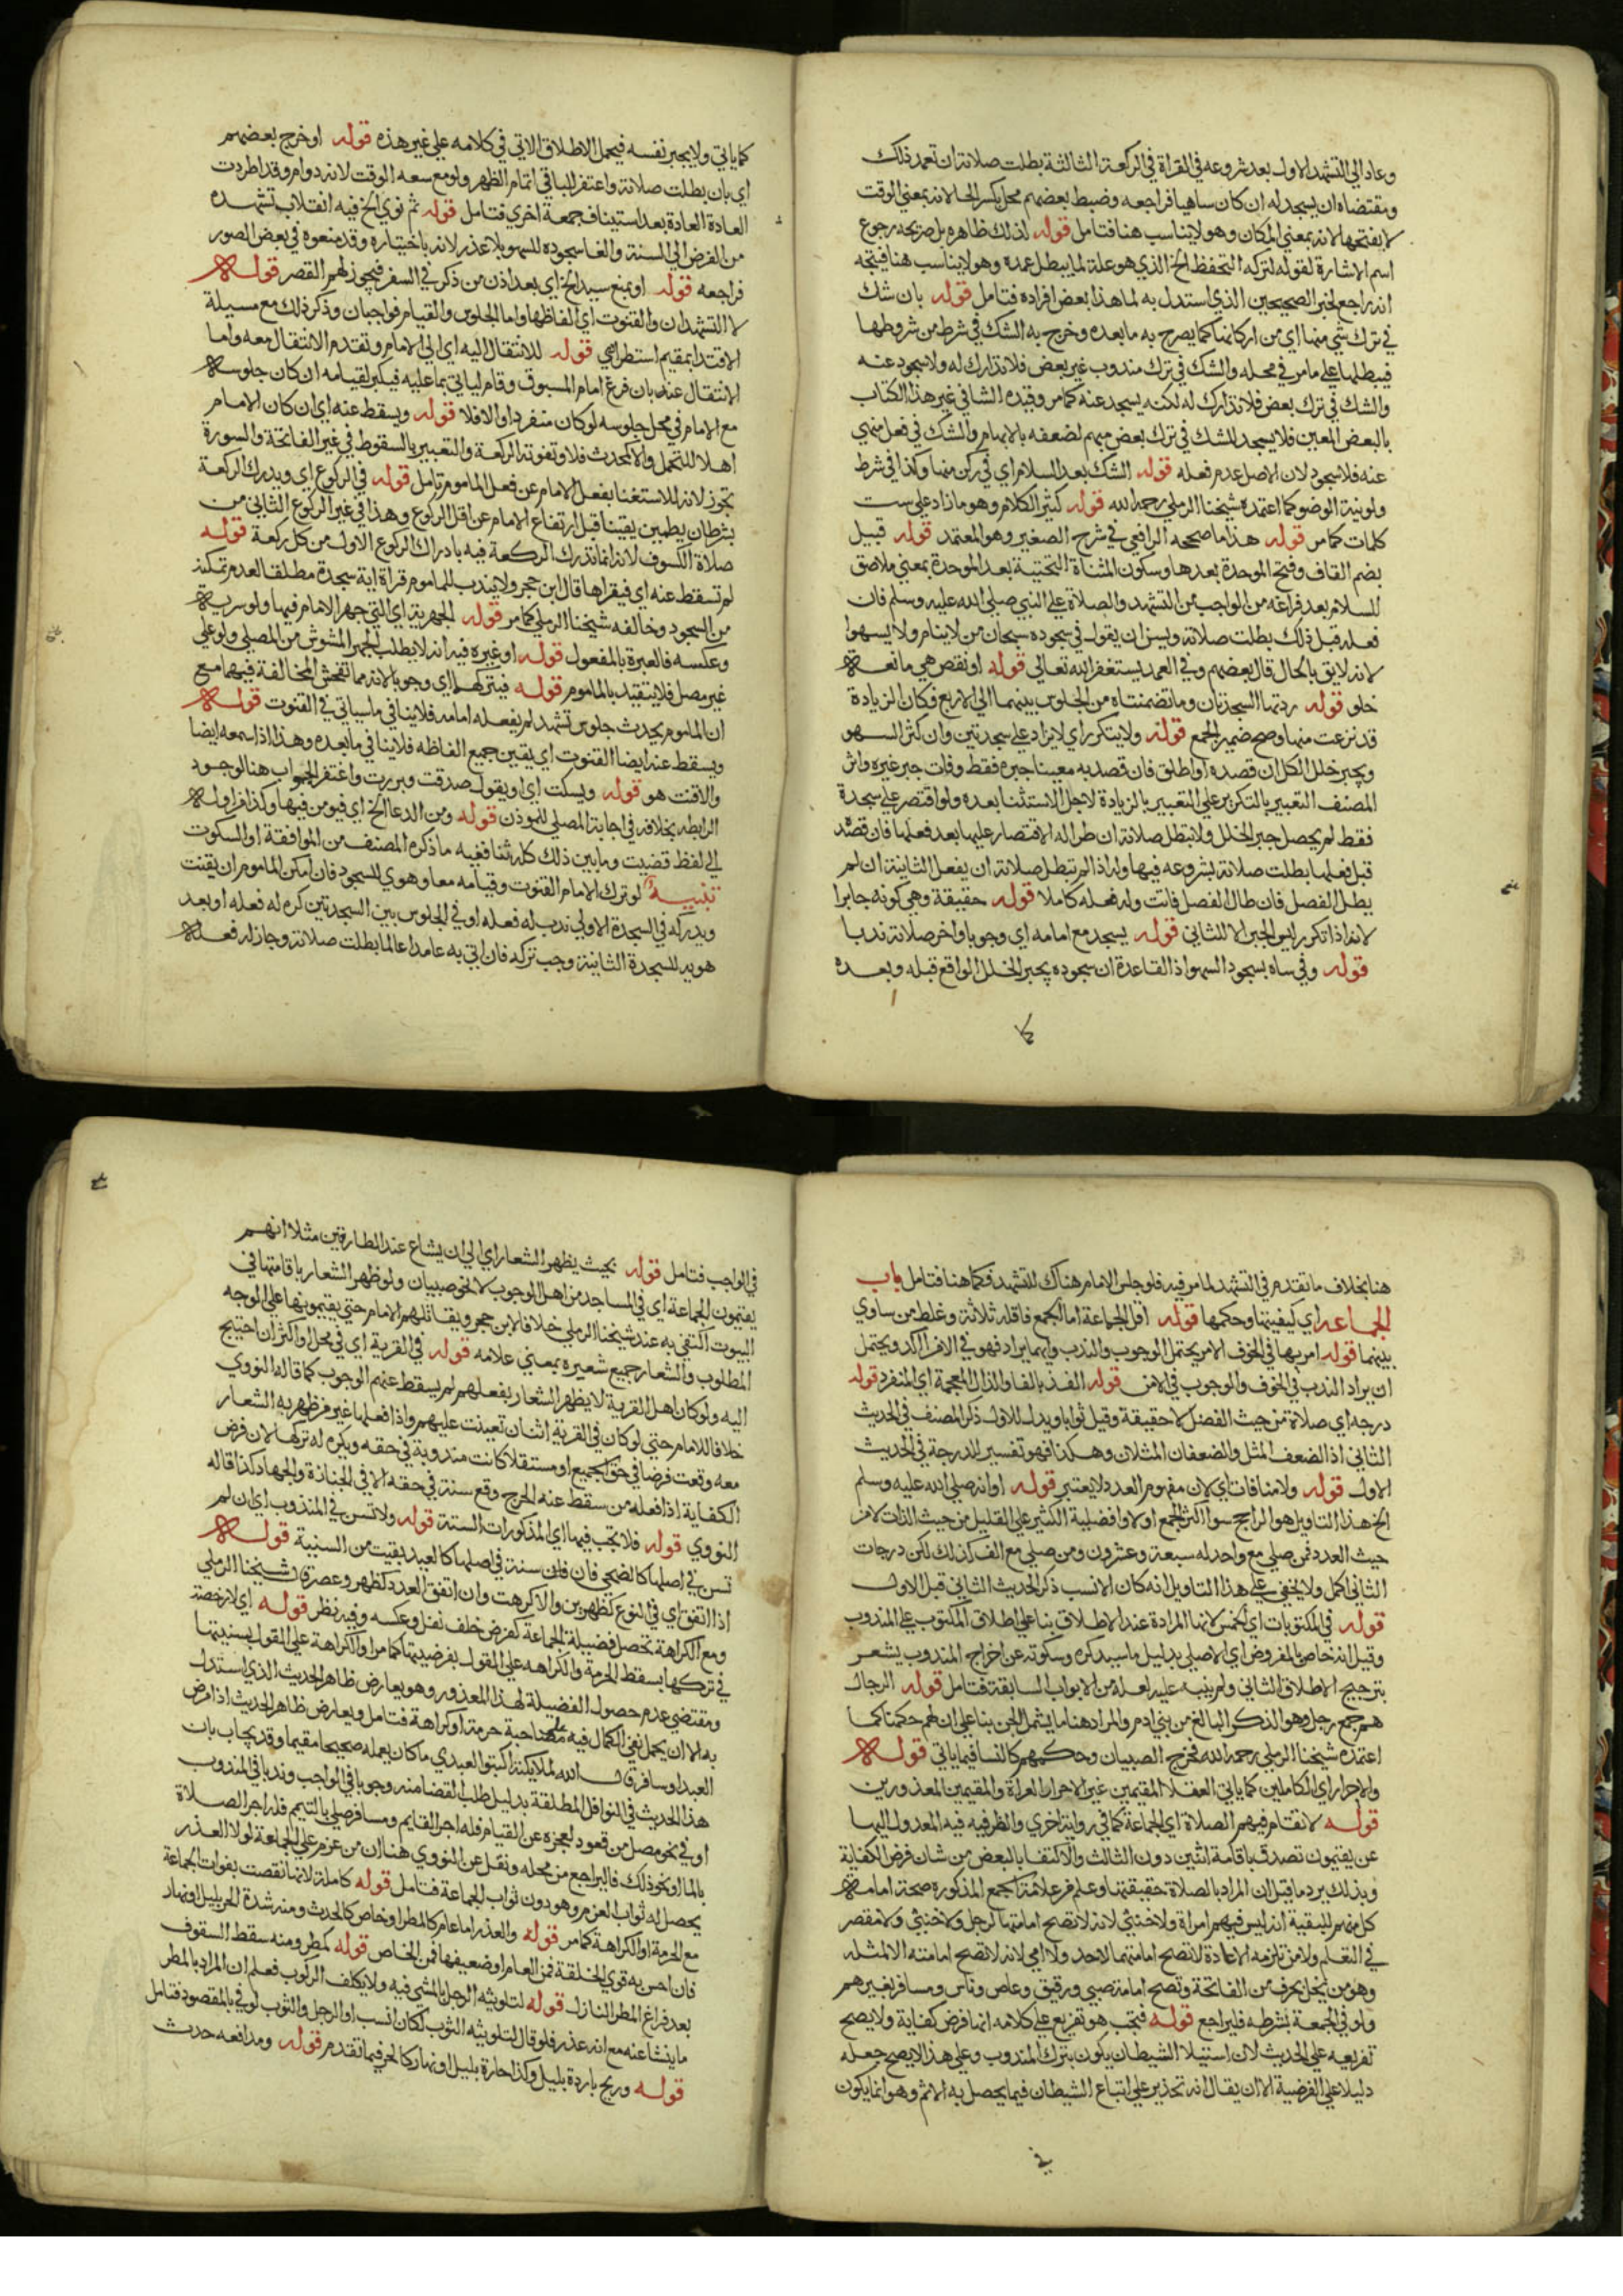 وعاد الي التشهد الاول بعد شروعه في القراة في الركعة الثالثة بطلت صلاته ان تعمد ذلك
ومقتضاه ان يسجد له ان كان ساهيا فراجعه وضبط بعضهم محل بكسر الحا لانه بمعني الوقت
لا بفتحها لانه بمعني المكان وهو لا يناسب هنا فتامل قوله لذلك ظاهره بل صريحه رجوع
اسم الاشارة لقوله لتركه التحفظ الخ الذي هو علة لما يبطل عمده وهو لا يناسب هنا فيتجه
انه راجع لخبر الصحيحين الذي استدل به لما هذا بعض افراده فتامل قوله بان شك
في ترك شي منها اي من اركانها كما يصرح به ما بعده وخرج به الشك في شرط من شروطها
فيبطلها علي ما مر في محله والشك في ترك مندوب غير بعض فلا تدارك له ولا سجود عنه
والشك في ترك بعض فلا تدارك له لكنه يسجد عنه كما مر وقيده الشافي غير هذا الكتاب
بالبعض المعين فلا يسجد للشك في ترك بعض مبهم لضعفه بالابهام والشك في فعل منهي
عنه فلا سجود لان الاصل عدم فعله قوله الشك بعد السلام اي في ركن منها وكذا في شرط
ولو نية الوضو كما اعتمده شيخنا الرملي رحمه الله قوله كثير الكلام وهو ما زاد علي ست
كلمات كما مر قوله هذا ما صححه الرافعي في شرح الصغير وهو المعتمد قوله قبيل
بضم القاف وفتح الموحدة بعدها وسكون المثناة التحتية بعد الموحدة بمعني ملاصق
للسلام بعد فراغه من الواجب من التشهد والصلاة علي النبي صلي الله عليه وسلم فان
فعله قبل ذلك بطلت صلاته ويسن ان يقول في سجوده سبحان من لا ينام ولا يسهوا
لانه لايق بالحال قال بعضهم وفي العمد يستغفر الله تعالي قوله او نقص هي مانعة
خلو قوله ردتها السجدتان وما تضمنتاه من الجلوس بينهما الي الاربع فكان الزيادة
قد نزعت منها وصح ضمير الجمع قوله ولا يتكرر اي لا يزاد علي سجدتين وان كثر السهو
ويجبر خلل الكل ان قصده او اطلق فان قصد به معينا جبره فقط وفات جبر غيره واثر
المصنف التعبير بالتكرير علي التعبير بالزيادة لاجل الاستثنا بعده ولو اقتصر علي سجدة
فقط لم يحصل جبر الخلل ولا تبطل صلاته ان طرا له الاقتصار عليها بعد فعلها فان قصده
قبل فعلها بطلت صلاته بشروعه فيها ولذا لم تبطل صلاته ان يفعل الثانية ان لم
يطل الفصل فان طال الفصل فاتت وله فعله كاملا قوله حقيقة وهي كونه جابرا
لانه اذا تكرر ليس الجبر الا للثاني قوله يسجد مع امامه اي وجوبا واخر صلاته ندبا
قوله وفي ساه بسجود السهو اذ القاعدة ان سجوده يجبر الخلل الواقع قبله وبعده
كما ياتي ولا يجبر نفسه فيحمل الاطلاق الاتي في كلامه علي غير هذه قوله او خرج بعضهم
اي بان بطلت صلاته واعتفر للباقي اتمام الظهر ولو مع سعه الوقت لانه دوام وقد اطردت
العادة العادة بعد استيناف جمعة اخري فتامل قوله ثم نوي الخ فيه انقلاب تشهده
من الفرض الي السنة والغا سجوده للسهو بلا عذر لانه باختياره وقد منعوه في بعض الصور
فراجعه قوله او يمنع سيد الخ اي بعد اذن من ذكر في السفر فيجوز لهم القصر قوله
لا التشهدان والقنوت اي الفاظها واما الجلوس والقيام فواجبان وذكر ذلك مع مسيلة
الاقتدا بمقيم استطرادي قوله للانتقال اليه اي الي الامام وتقدم الانتقال معه واما
الانتقال عنه بان فرغ امام المسبوق وقام لياتي بما عليه فيكبر لقيامه ان كان جلوسه
مع الامام في محل جلوسه لو كان منفردا والا فلا قوله ويسقط عنه اي ان كان الامام
اهلا للتحمل والا كمحدث فلا وتفوته الركعة والتعبير بالسقوط في غير الفاتحة والسورة
تجوز لانه للاستغنا بفعل الامام عن فعل الماموم تامل قوله في الركوع اي ويدرك الركعة
بشرط ان يطمين يقينا قبل ارتفاع الامام عن اقل الركوع وهذا في غير الركوع الثاني من
صلاة الكسوف لانه انما تدرك الركعة فيه بادراك الركوع الاول من كل ركعة قوله
لم تسقط عنه اي فيقراها قال ابن حجر ولا يندب للماموم قراة اية سجدة مطلقا لعدم تمكنه
من السجود وخالفه شيخنا الرملي كما مر قوله الجهرية اي التي جهر الامام فيها ولو سرية
وعكسه فالعبرة بالمفعول قوله او غيره فيه انه لا يطلب الجهر المشوش من المصلي ولو علي
غير مصل فلا يتقيد بالماموم قوله فيتركها اي وجوبا لانه مما تفحش المخالفة فيهما مع
ان الماموم يحدث جلوس تشهد لم يفعله امامه فلا ينافي ما سياتي في القنوت قوله
ويسقط عنه ايضا القنوت اي يقين جميع الفاظه فلا ينافي ما بعده وهذا اذا سمعه ايضا
والا قنت هو قوله ويسكت اي او يقول صدقت وبررت واغتفر الجواب هنا لوجود
الرابطة بخلافه في اجابة المصلي للموذن قوله ومن الدعا الخ اي فيومن فيها وكذا من اوله
الي لفظ قضيت وما بين ذلك كله ثنا ففيه ما ذكره المصنف من الموافقة او السكوت
تنبيه لو ترك الامام القنوت وقيامه معا وهوي للسجود فان امكن الماموم ان يقنت
ويدركه في السجدة الاولي ندب له فعله او في الجلوس بين السجدتين كره له فعله او بعد
هويه للسجدة الثانية وجب تركه فان اتي به عامدا عالما بطلت صلاته وجاز له فعله
هنا بخلاف ما تقدم في التشهد لما مر فيه فلو جلس الامام هناك للتشهد فكما هنا فتامل باب
الجماعة اي كيفيتها وحكمها قوله اقل الجماعة اما الجمع فاقله ثلاثة وغلط من ساوي
بينهما قوله امر بها في الخوف الامر يحتمل الوجوب والندب وايهما يراد فهو في الامن اكد ويحتمل
ان يراد الندب في الخوف والوجوب في الامن قوله الفذ بالفا والذال المعجمة اي المنفرد قوله
درجه اي صلاة من حيث الفضل لا حقيقة وقيل ثوابا ويدل للاول ذكر المصنف في الحديث
الثاني اذ الضعف المثل والضعفان المثلان وهكذا فهو تفسير للدرجة في الحديث
الاول قوله ولا منافات اي لان مفهوم العدد لا يعتبر قوله او انه صلي الله عليه وسلم
الخ هذا التاويل هو الراجح سوا اكثر الجمع او لا وافضلية الكثير علي القليل من حيث الذات لا من
حيث العدد فمن صلي مع واحد له سبعة وعشرون ومن صلي مع الف كذلك لكن درجات
الثاني اكمل ولا يخفي علي هذا التاويل انه كان الانسب ذكر الحديث الثاني قبل الاول
قوله في المكتوبات اي الخمس لانها المرادة عند الاطلاق بنا علي اطلاق المكتوب علي المندوب
وقيل انه خاص بالمفروض اي الاصلي بدليل ما سيذكره وسكوته عن اخراج المندوب يشعر
بترجيح الاطلاق الثاني ولم ينبه عليه لعله من الابواب السابقة فتامل قوله الرجال
هم جمع رجل وهو الذكر البالغ من بني ادم والمراد هنا ما يشمل الجن بنا علي ان لهم حكمنا كما
اعتمده شيخنا الرملي رحمه الله فخرج الصبيان وحكمهم كالنسا فيما ياتي قوله
والاحرار اي الكاملين كما ياتي العقلا المقيمين غير الاحرار العراة والمقيمين المعذورين
قوله لا تقام فيهم الصلاة اي الجماعة كما في رواية اخري والظرفيه فيه المعدول اليها
عن يقيمون تصدق باقامة اثنين دون الثالث والاكتفا بالبعض من شان فرض الكفاية
وبذلك يرد ما قيل ان المراد بالصلاة حقيقتها وعلم من علامة الجمع المذكورة صحة امامة
كل منهم للبقية اذ ليس فيهم امراة ولا خنثي لانه لا تصح امامتها لرجل ولا خنثي ولا مقصر
في التعلم ولا من تلزمه الاعادة لا تصح امامتها لاحد ولا امي لانه لا تصح امامته الا لمثله
وهو من يخل بحرف من الفاتحة وتصح امامة صبي ورقيق وعاص وفاسق ومسافر بغيرهم
ولو في الجمعة بشرطه فليراجع قوله فتجب هو تفريع علي كلامه انها فرض كفاية ولا يصح
تفريعه علي الحديث لان استيلا الشيطان يكون بترك المندوب وعلي هذا لا يصح جعله
دليلا علي الفرضية الا ان يقال انه تحذير علي اتباع الشيطان فيما يحصل به الاثم وهو انما يكون
في الواجب فتامل قوله بحيث يظهر الشعار اي الي ان يشاع عند الطارقين مثلا انهم
يقيمون الجماعة اي في المساجد من اهل الوجوب لا نحو صبيان ولو ظهر الشعار باقامتها في
البيوت اكتفي به عند شيخنا الرملي خلافا لابن حجر ويقاتلهم الامام حتي يقيموها علي الوجه
المطلوب والشعار جميع شعيره بمعني علامه قوله في القرية اي في محل او اكثر ان احتيج
اليه ولو كان اهل القرية لا يظهر الشعار بفعلهم لم يسقط عنهم الوجوب كما قاله النووي
خلافا للامام حتي لو كان في القرية اثنان تعينت عليهم واذا فعلها غير من ظهر به الشعار
معه وقعت فرضا في حق الجميع او مستقلا كانت مندوبة في حقه ويكره له تركها لان فرض
الكفاية اذا فعله من سقط عنه الحرج وقع سنة في حقه الا في الجنازة والجهاد كذا قاله
النووي قوله فلا تجب فيها اي المذكورات السنة قوله ولا تسن في المنذوب اي ان لم
تسن في اصلها كالضحي فان كان سنة في اصلها كالعيد بقيت من السنية قوله
اذا اتفق اي في النوع كظهرين والا كرهت وان اتفق العدد كظهر وعصر قال شيخنا الرملي
ومع الكراهة تحصل فضيلة الجماعة كفرض خلف نفل وعكسه وفيه نظر قوله اي لا رخصة
في تركها يسقط الحرمة والكراهه علي القول بفرضيتها كما مر او الكراهة علي القول بسنيتها
ومقتضي عدم حصول الفضيلة لهذا المعذور وهو يعارض ظاهر الحديث الذي استدل
به الا ان يحمل نفي الكمال فيه علي مصاحبة حرمة او كراهة فتامل ويعارض ظاهر الحديث اذا مرض
العبد او سافر قال الله لملايكته اكتبوا لعبدي ما كان يعمله صحيحا مقيما وقد يجاب بان
هذا الحديث في النوافل المطلقة بدليل طلب القضا منه وجوبا في الواجب وندبا في المندوب
او في نحو مصل من قعود لعجزه عن القيام فله اجر القايم ومسافر صلي بالتيمم فله اجر الصلاة
بالما او نحو ذلك فاليراجع من محله ونقل عن النووي هنا ان من عزم علي الجماعة لولا العذر
يحصل له ثواب العزم وهو دون ثواب الجماعة فتامل قوله كاملة لانها نقصت بفوات الجماعة
مع الحرمة او الكراهة كما مر قوله والعذر اما عام كالمطر او خاص كالحدث ومنه شدة الحر بليل او نهار
فان احس به قوي الخلقة فمن العام او ضعيفها فمن الخاص قوله كمطر ومنه سقط السقوف
بعد فراغ المطر النازل قوله لتلويثه الرجل بالمشي فيه ولا يكلف الركوب فعلم ان المراد بالمطر
ما ينشا عنه مع انه عذر فلو قال لتلويثه الثوب لكان انسب او الرجل والثوب لوفي بالمقصود فتامل
قوله وريح باردة بليل وكذا حارة بليل او نهار كالحر فيما تقدم قوله ومدافعه حدث